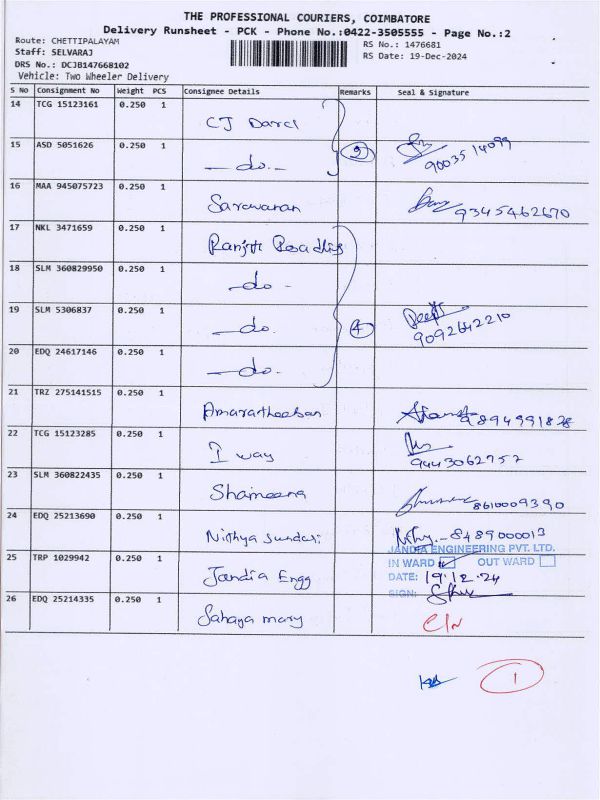 THE PROFESSIONAL COURIERS, COIMBATORE
Delivery Runsheet - PCK - Phone No.:0422-3505555 - Page No.:2
Route: CHETTIPALAYAM
RS No.: 1476681
Staff: SELVARAJ
RS Date: 19-Dec-2024
DRS No.: DCJB147668102
Vehicle: Two Wheeler Delivery
S No Consignment No Weight PCS Consignee Details Remarks Seal & Signature
14 TCG 15123161 0.250 1 CJ Darcl
15 ASD 5051626 0.250 1 -do.- 9003514099
16 MAA 945075723 0.250 1 Saravanan 9345462670
17 NKL 3471659 0.250 1 Ranjit
18 SLM 360829950 0.250 1 -do-
19 SLM 5306837 0.250 1 -do. 4 9092642210
20 EDQ 24617146 0.250 1 -do.
21 TRZ 275141515 0.250 1 Amaratheeban 9894991828
22 TCG 15123285 0.250 1 I way 9443062757
23 SLM 360822435 0.250 1 Shameena 8610009390
24 EDQ 25213690 0.250 1 Nithya Sundari - 8489000013
JANDIA ENGINEERING PVT. LTD.
IN WARD OUT WARD
25 TRP 1029942 0.250 1 Jandia Engg
DATE: 19.12.24
SIGN:
26 EDQ 25214335 0.250 1 Sahaya mary C/N
1